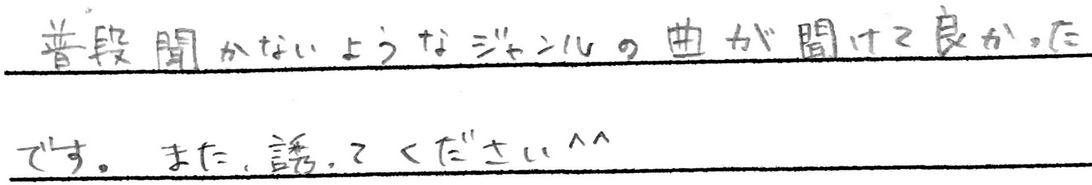 普段聞かないようなジャンルの曲が聞けて良かった
です。また、誘ってください^^